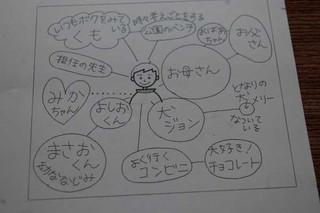 いつもボクをみている
くも
時々考えごとをする
公園のベンチ
おばあ
ちゃん
お父
さん
担任の先生
お母さん
みか
ちゃん
よしお
くん
犬
ジョン
となりの
メリー
なついている
まさお
くん
幼ななじみ
よく行く
コンビニ
大好き!
チョコレート